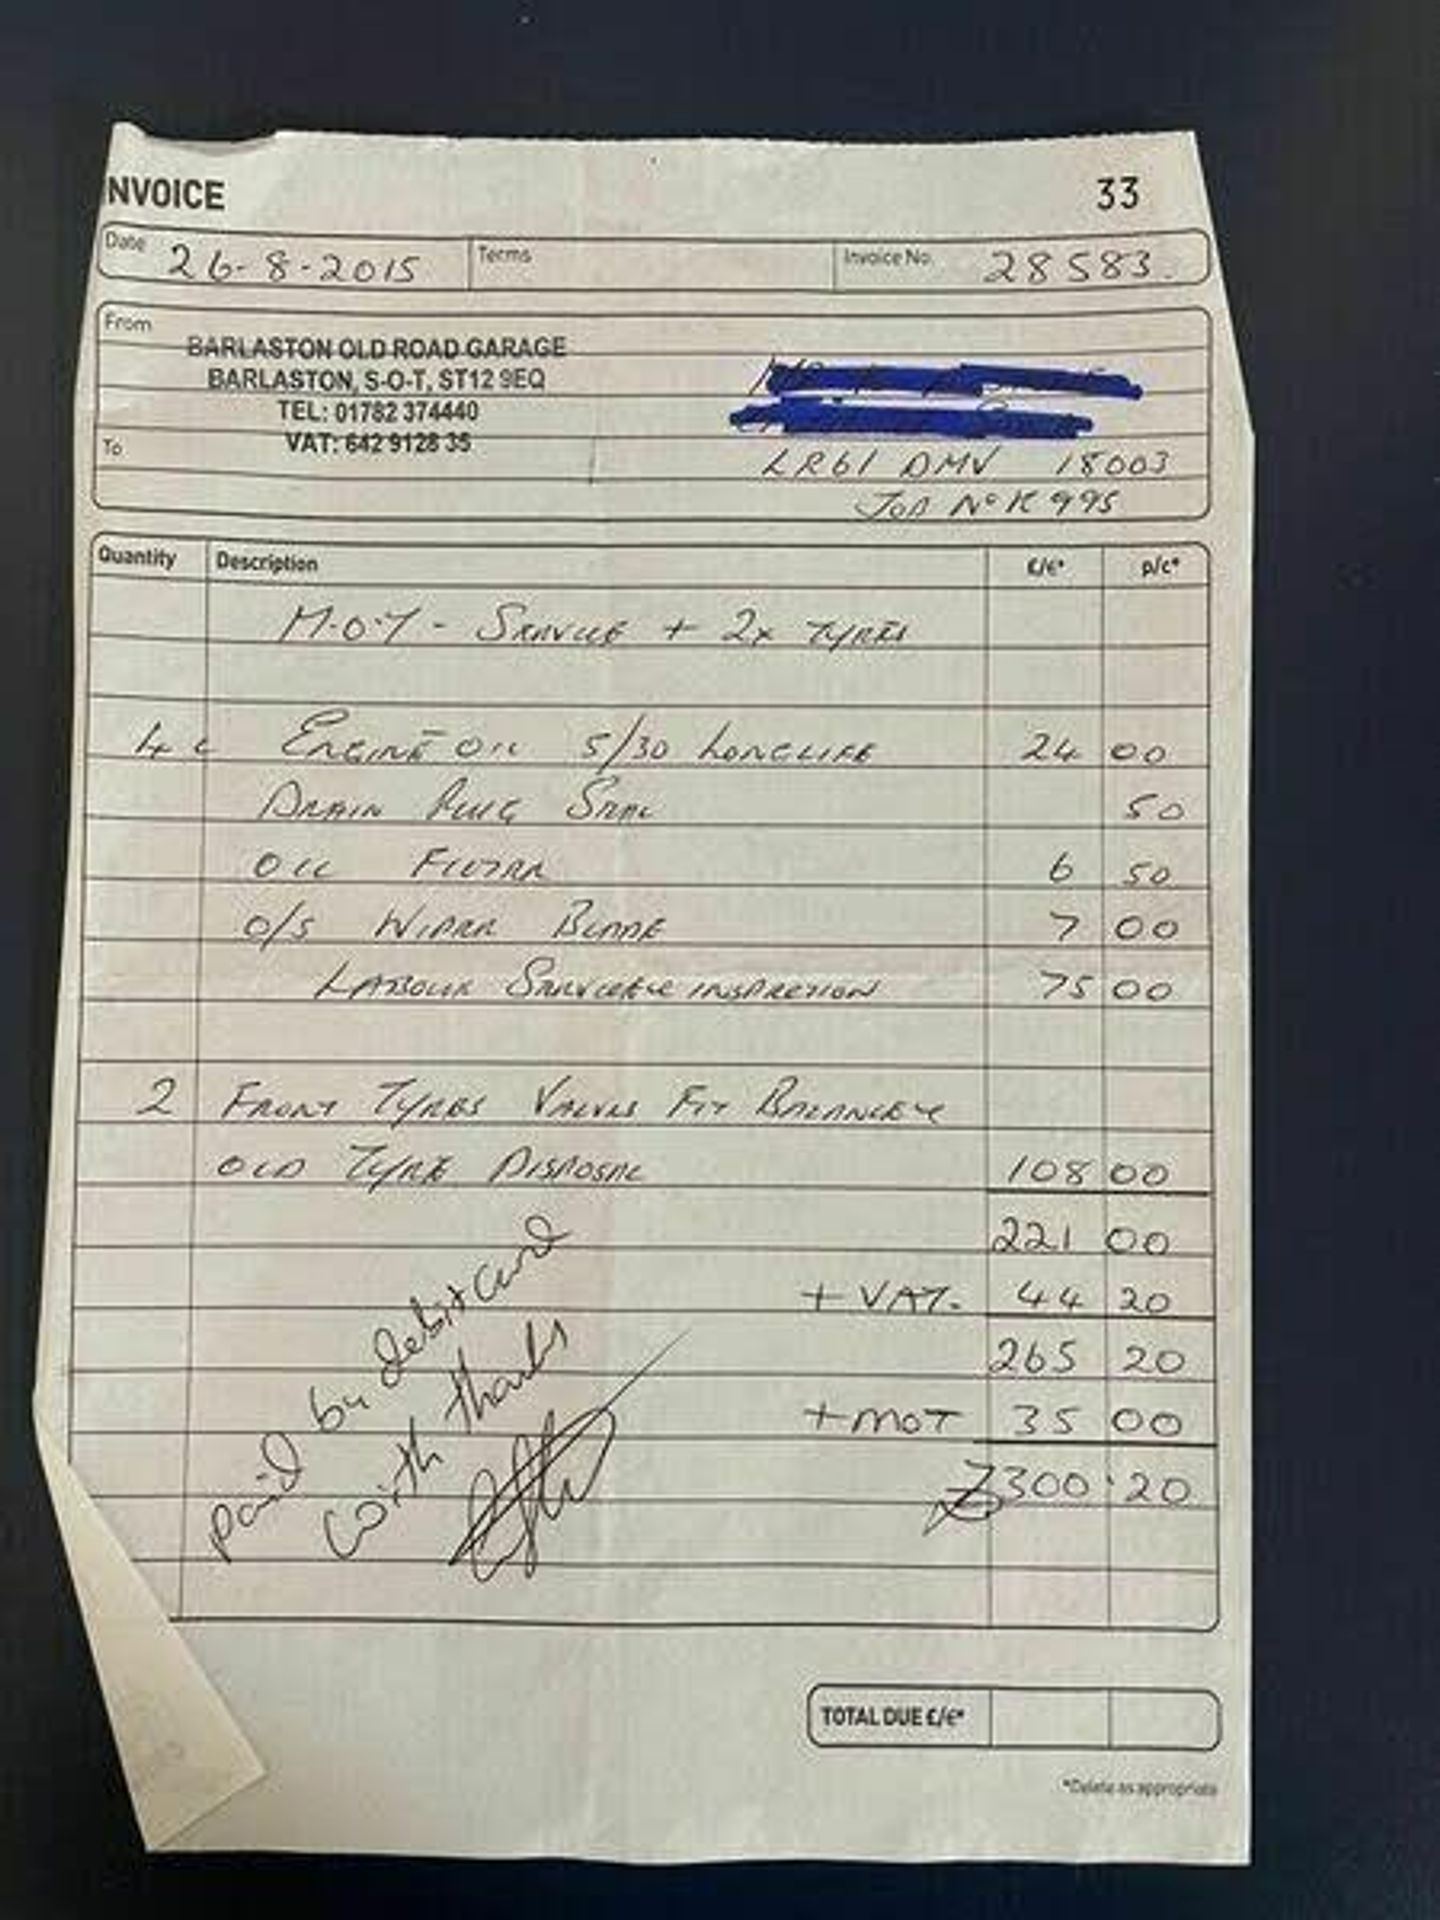 NVOICE 33
Date 26-8-2015 Terms Invoice No. 28583.
From
BARLASTON OLD ROAD GARAGE
BARLASTON, S-O-T, ST12 9EQ
TEL: 01782 374440
VAT: 642 9128 35
To
LR61 DMV 18003
JOB No K995
Quantity Description £/€* p/c*
M.O.T - SERVICE + 2x TYRES
4 L ENGINE OIL 5/30 LONGLIFE 24 00
DRAIN PLUG SEAL 50
OIL FILTER 6 50
O/S WIPER BLADE 7 00
LABOUR SERVICE & INSPECTION 75 00
2 FRONT TYRES VALVES FIT BALANCE &
OLD TYRE DISPOSAL 108 00
221 00
+ VAT. 44 20
265 20
+ MOT 35 00
300.20
paid by debit card
with thanks
TOTAL DUE £/€*
*Delete as appropriate